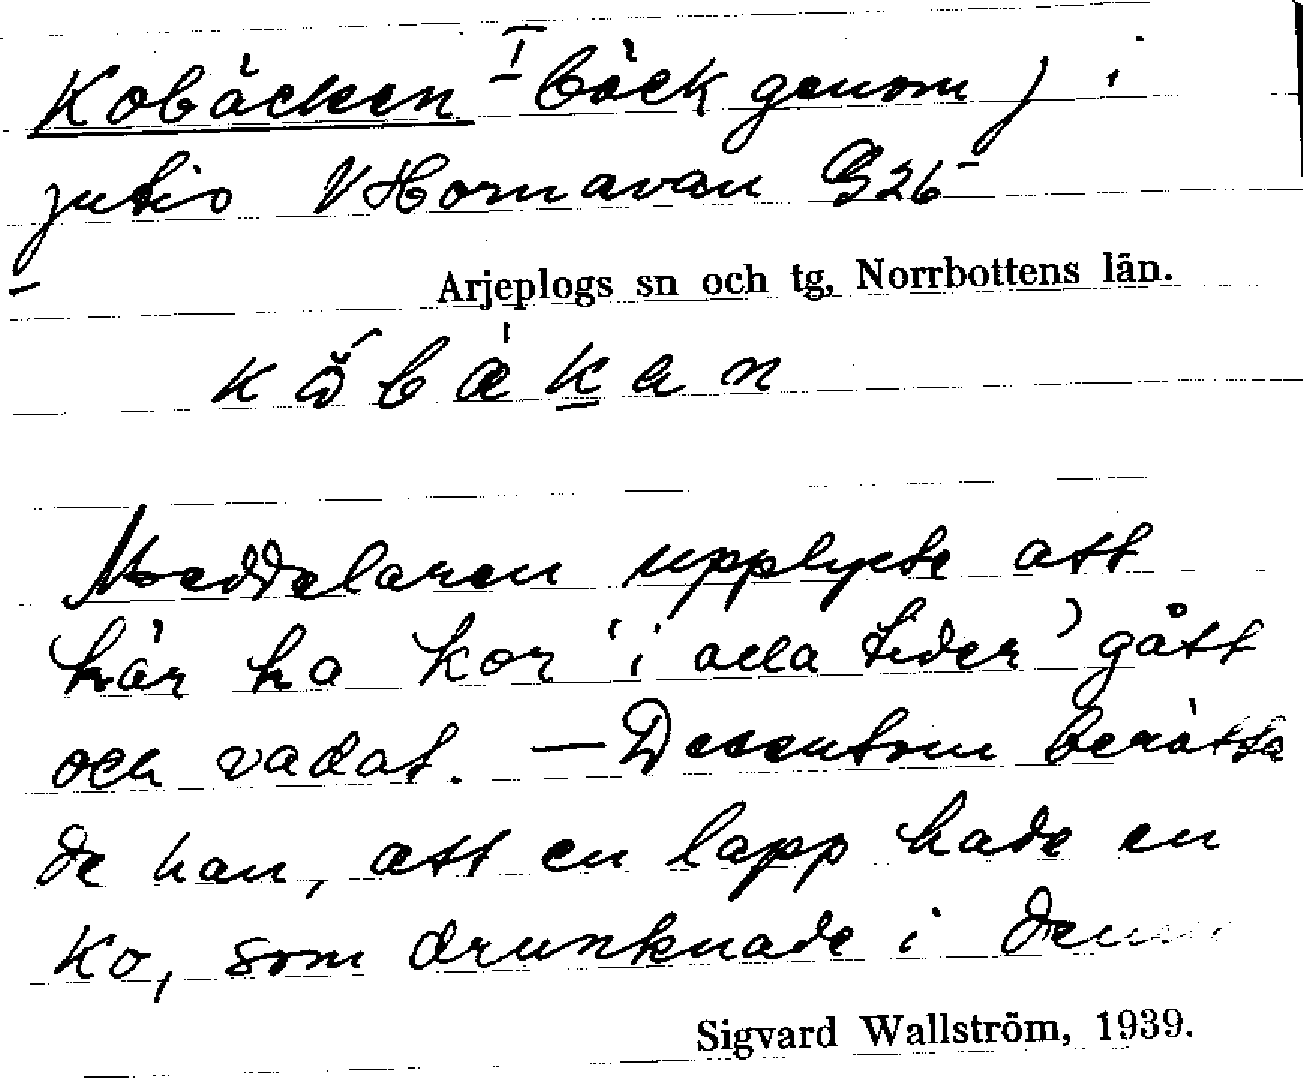 Kobäcken I bäck genom ) i
jutis V Hornavan G26
Arjeplogs sn och tg, Norrbottens län.
kω̆́bä́kan
Meddelaren upplyste att
här ha kor 'i alla tider' gått
och vadat. — Dessutom berätta
de han, att en lapp hade en
ko, som drunknade i den
Sigvard Wallström, 1939.